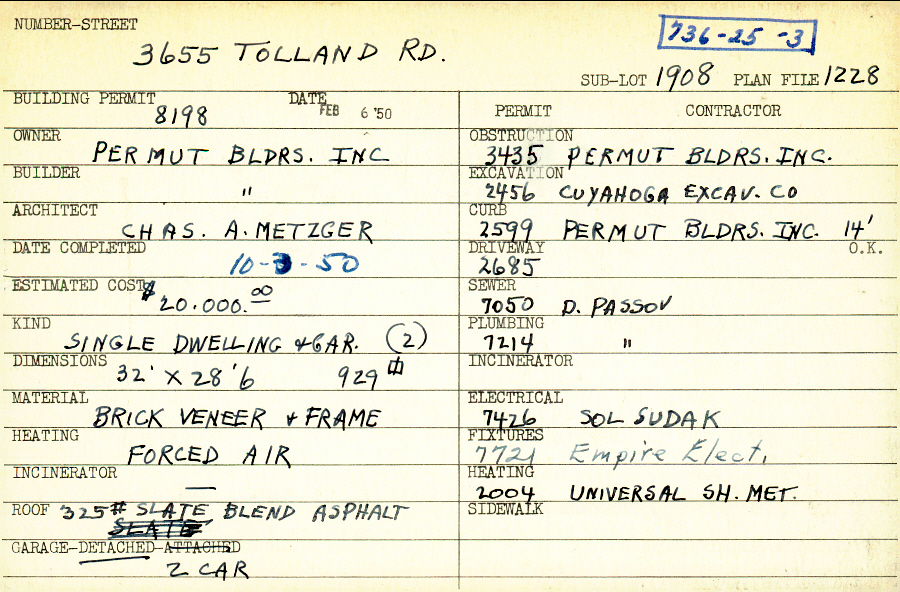 NUMBER-STREET
3655 TOLLAND RD.
736-25-3
SUB-LOT 1908 PLAN FILE 1228
BUILDING PERMIT DATE
8198 FEB 6 '50
OWNER
PERMUT BLDRS. INC
BUILDER
"
ARCHITECT
CHAS. A. METZGER
DATE COMPLETED
10-3-50
ESTIMATED COST
$20.000.00
KIND
SINGLE DWELLING & GAR. (2)
DIMENSIONS
32' X 28'6 929
MATERIAL
BRICK VENEER & FRAME
HEATING
FORCED AIR
INCINERATOR
—
ROOF 325# SLATE BLEND ASPHALT
SLATE
GARAGE-DETACHED-ATTACHED
2 CAR
PERMIT CONTRACTOR
OBSTRUCTION
3435 PERMUT BLDRS. INC.
EXCAVATION
2456 CUYAHOGA EXCAV. CO
CURB
2599 PERMUT BLDRS. INC. 14'
DRIVEWAY O.K.
2685
SEWER
7050 D. PASSOV
PLUMBING
7214 "
INCINERATOR
ELECTRICAL
7426 SOL SUDAK
FIXTURES
7721 Empire Elect.
HEATING
2004 UNIVERSAL SH. MET.
SIDEWALK